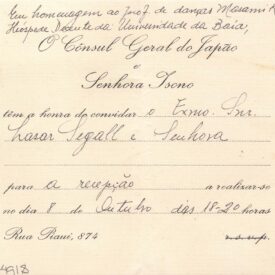 Em homenagem ao Prof. de danças Masami K
Hóspede Docente da Universidade da Baía,
O Cônsul Geral do Japão
e
Senhora Isono
têm a honra de convidar o Exmo. Snr.
Lasar Segall e Senhora
para a recepção a realizar-se
no dia 8 de Outubro às 18-20 horas
Rua Piauí, 874 r.s.v.p.
4918